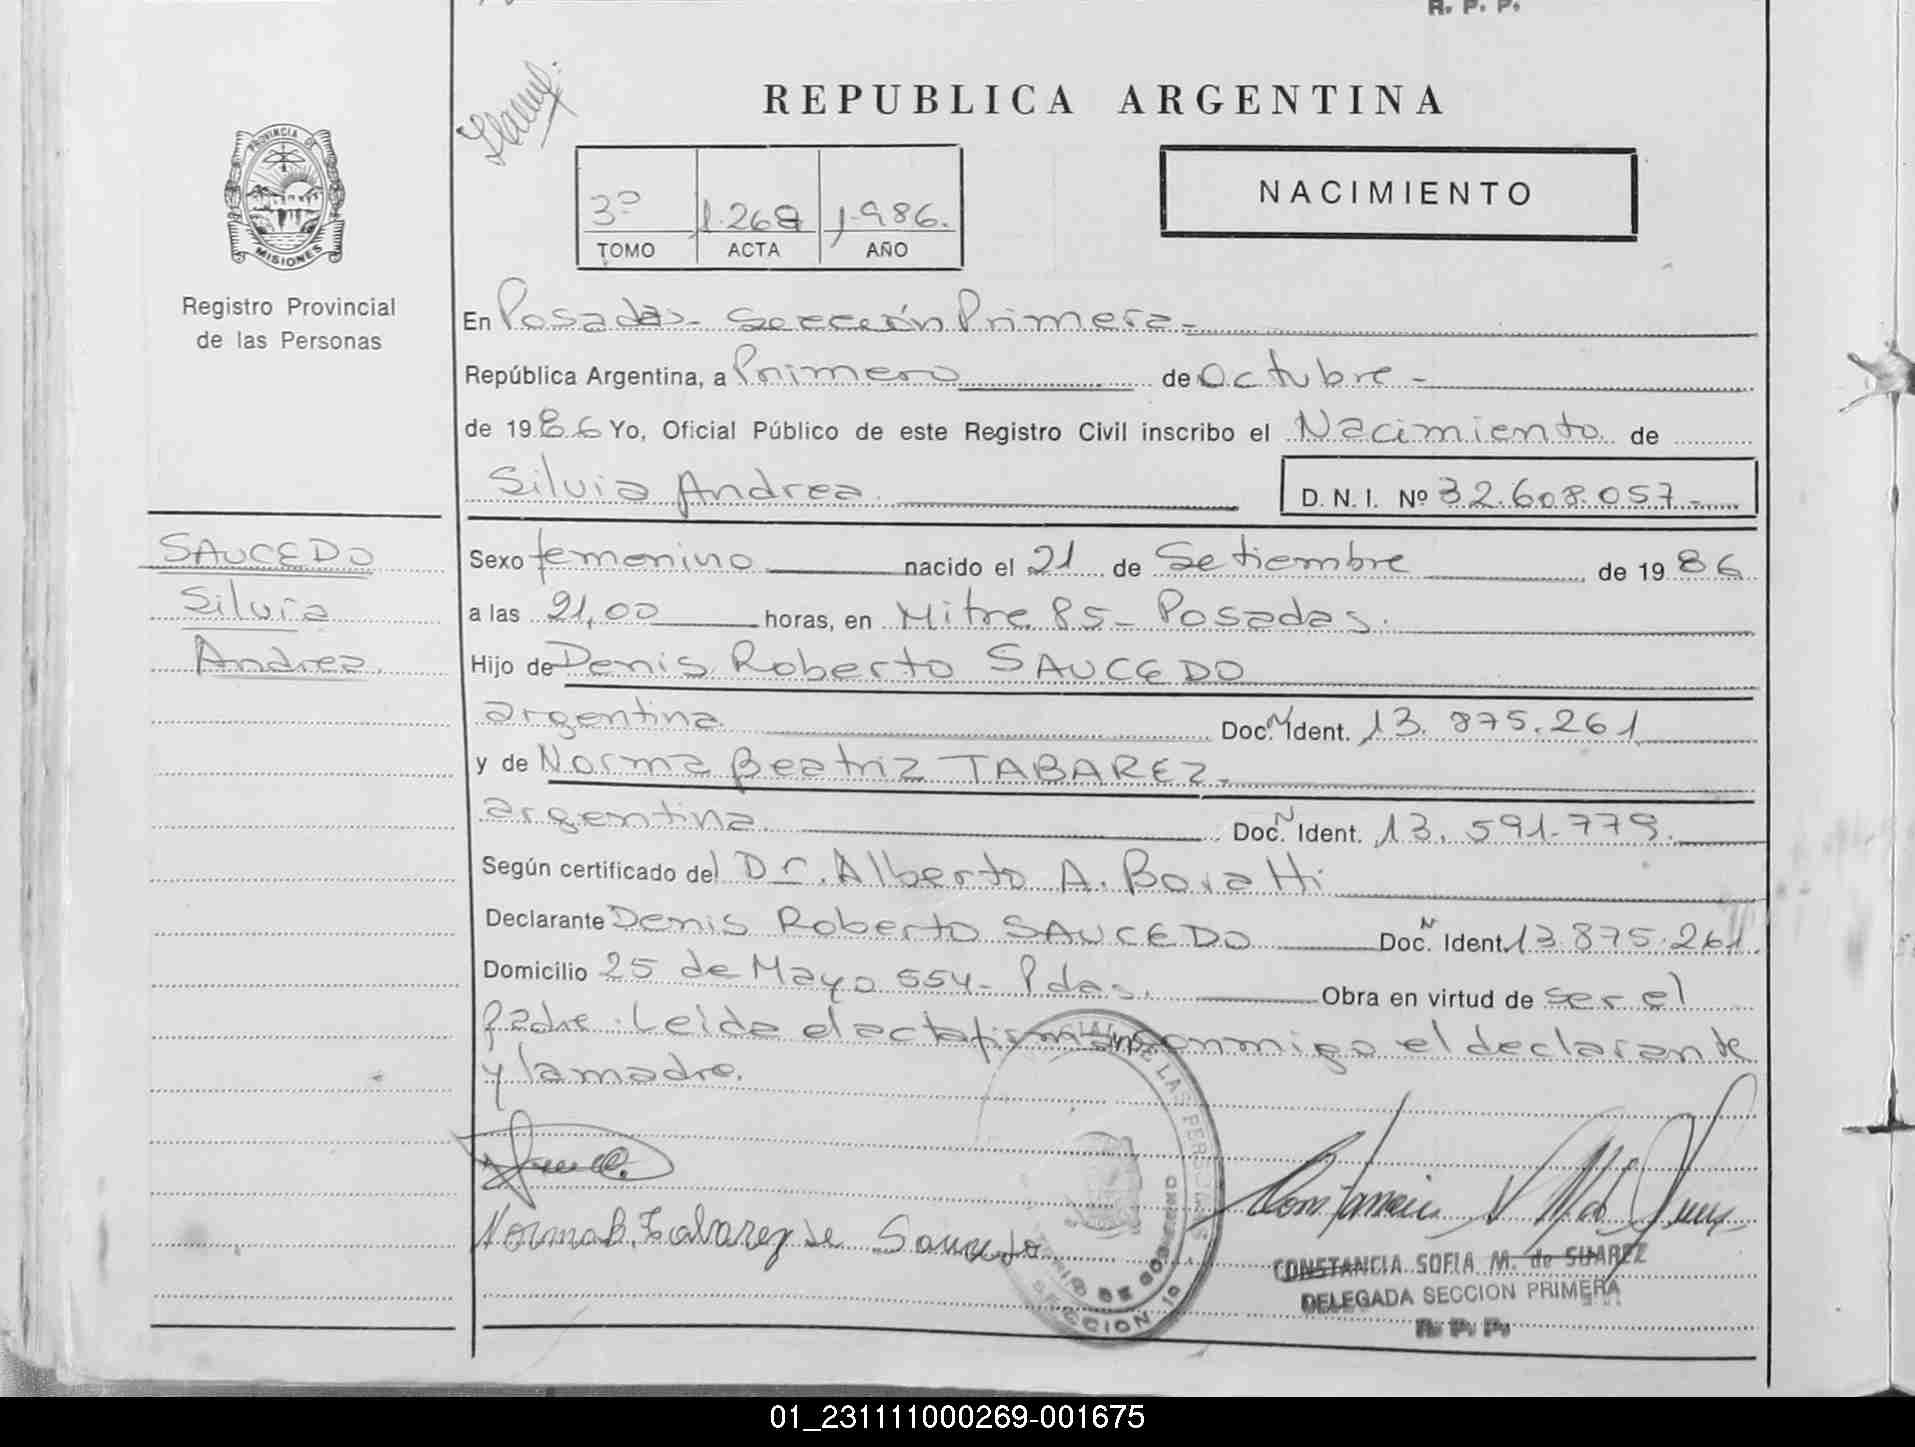 R. P. P.
REPUBLICA ARGENTINA
PROVINCIA DE
MISIONES
Registro Provincial
de las Personas
3º 1.268 1.986.
TOMO ACTA AÑO
NACIMIENTO
En Posadas - Sección Primera -
República Argentina, a Primero de Octubre -
de 1986 Yo, Oficial Público de este Registro Civil inscribo el Nacimiento de
Silvia Andrea. D. N. I. Nº 32.608.057.-
SAUCEDO
Silvia
Andrea.
Sexo femenino nacido el 21 de Setiembre de 1986
a las 21,00 horas, en Mitre 85 - Posadas.
Hijo de Denis Roberto SAUCEDO
argentina. Doc. N Ident. 13.875.261
y de Norma Beatriz TABAREZ.
argentina. Doc. N Ident. 13.591.779.
Según certificado del Dr. Alberto A. Boratti
Declarante Denis Roberto SAUCEDO Doc. N Ident. 13.875.261
Domicilio 25 de Mayo 554 - Pdas. Obra en virtud de ser el
padre. Leida el acta firman conmigo el declarante
y la madre.
Norma B. Tabarez de Saucedo
DE LAS PERSONAS
DE GOBIERNO
SECCION 1º
CONSTANCIA SOFIA M. de SUAREZ
DELEGADA SECCION PRIMERA
R. P. P.
01_231111000269-001675